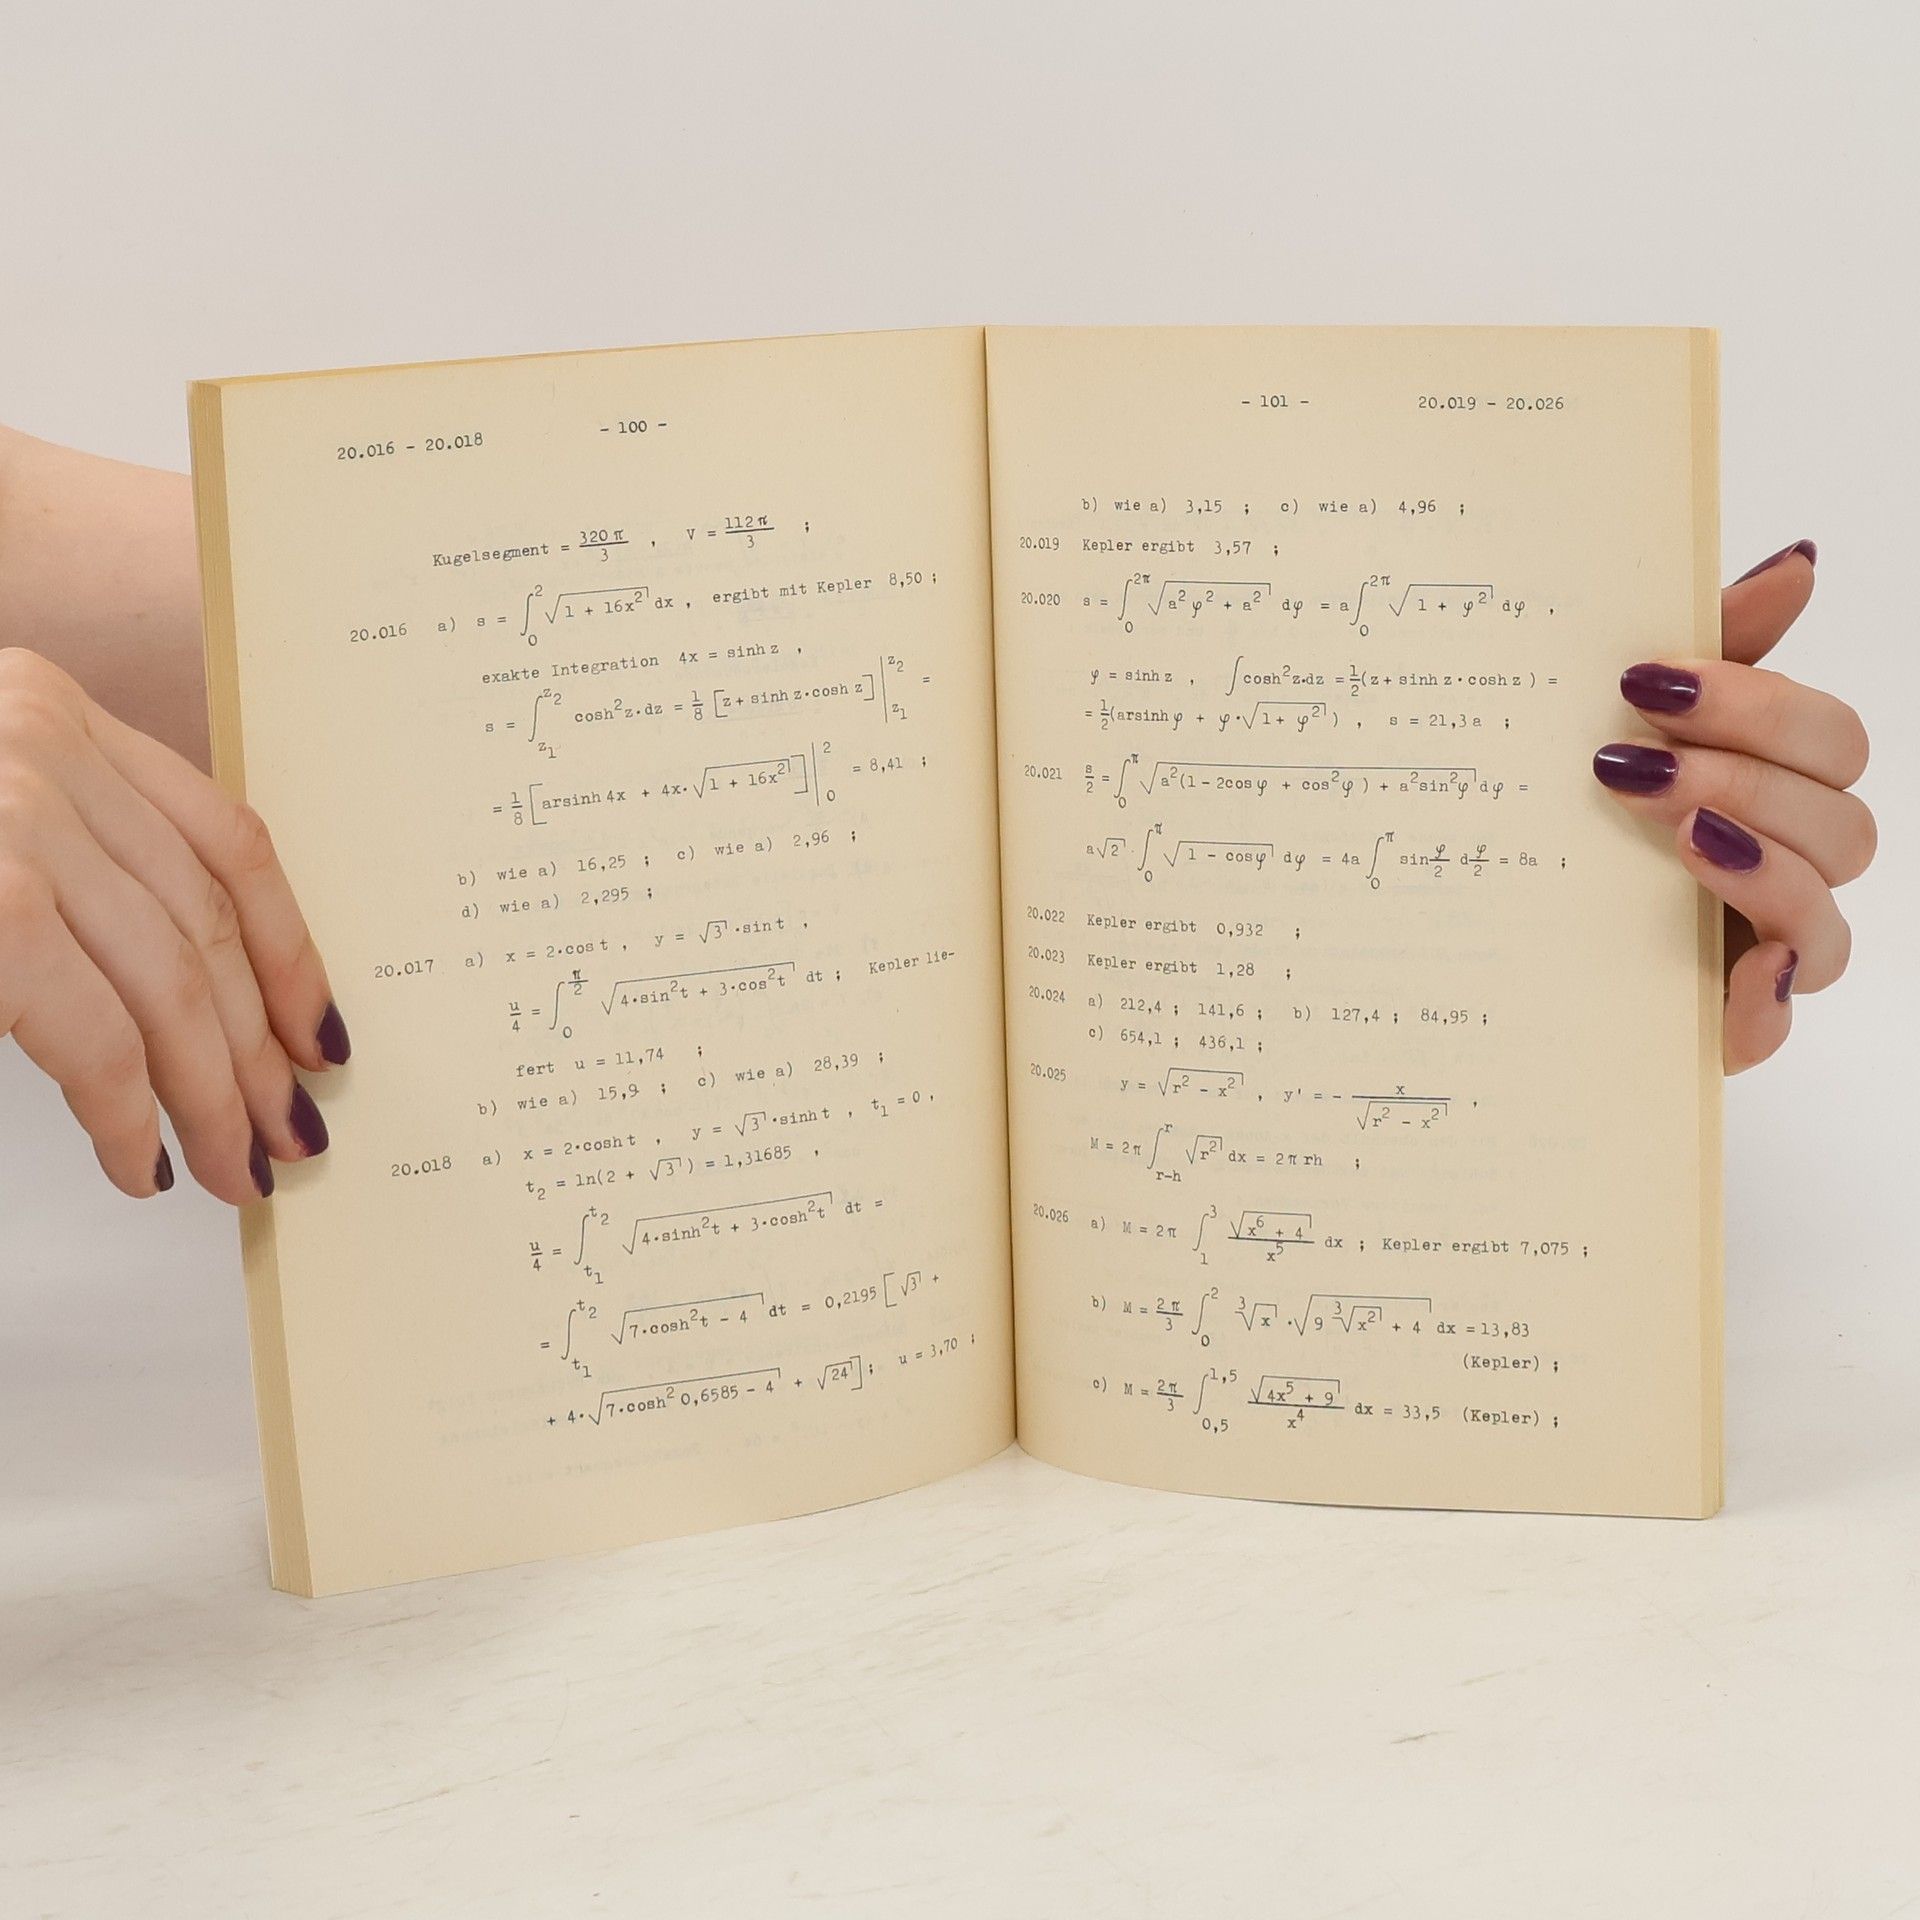 20.016 - 20.018 - 100 -
Kugelsegment = 320π/3 , V = 112π/3 ;
20.016 a) s = ∫₀² √(1 + 16x²) dx , ergibt mit Kepler 8,50 ;
exakte Integration 4x = sinh z ,
s = ∫_{z₁}^{z₂} cosh²z·dz = 1/8 [z + sinh z·cosh z] |_{z₁}^{z₂} =
= 1/8 [arsinh 4x + 4x·√(1 + 16x²)] |₀² = 8,41 ;
b) wie a) 16,25 ; c) wie a) 2,96 ;
d) wie a) 2,295 ;
20.017 a) x = 2·cos t , y = √3·sin t ,
u/4 = ∫₀^{π/2} √(4·sin²t + 3·cos²t) dt ; Kepler lie-
fert u = 11,74 ;
b) wie a) 15,9 ; c) wie a) 28,39 ;
20.018 a) x = 2·cosh t , y = √3·sinh t , t₁ = 0 ,
t₂ = ln(2 + √3) = 1,31685 ,
u/4 = ∫_{t₁}^{t₂} √(4·sinh²t + 3·cosh²t) dt =
= ∫_{t₁}^{t₂} √(7·cosh²t - 4) dt = 0,2195 [√3 +
+ 4·√(7·cosh² 0,6585 - 4) + √24] ; u = 3,70 ;
- 101 - 20.019 - 20.026
b) wie a) 3,15 ; c) wie a) 4,96 ;
20.019 Kepler ergibt 3,57 ;
20.020 s = ∫₀^{2π} √(a²φ² + a²) dφ = a∫₀^{2π} √(1 + φ²) dφ ,
φ = sinh z , ∫cosh²z·dz = 1/2(z + sinh z·cosh z ) =
= 1/2(arsinh φ + φ·√(1 + φ²) ) , s = 21,3 a ;
20.021 s/2 = ∫₀^π √(a²(1 - 2cos φ + cos²φ ) + a²sin²φ) dφ =
a√2 · ∫₀^π √(1 - cos φ) dφ = 4a ∫₀^π sin φ/2 d φ/2 = 8a ;
20.022 Kepler ergibt 0,932 ;
20.023 Kepler ergibt 1,28 ;
20.024 a) 212,4 ; 141,6 ; b) 127,4 ; 84,95 ;
c) 654,1 ; 436,1 ;
20.025 y = √(r² - x²) , y' = - x/√(r² - x²) ,
M = 2π ∫_{r-h}^{r} √(r²) dx = 2π rh ;
20.026 a) M = 2π ∫₁³ √(x⁶ + 4)/x⁵ dx ; Kepler ergibt 7,075 ;
b) M = 2π/3 ∫₀² ∛x · √(9 ∛(x²) + 4) dx = 13,83
(Kepler) ;
c) M = 2π/3 ∫_{0,5}^{1,5} √(4x⁵ + 9)/x⁴ dx = 33,5 (Kepler) ;